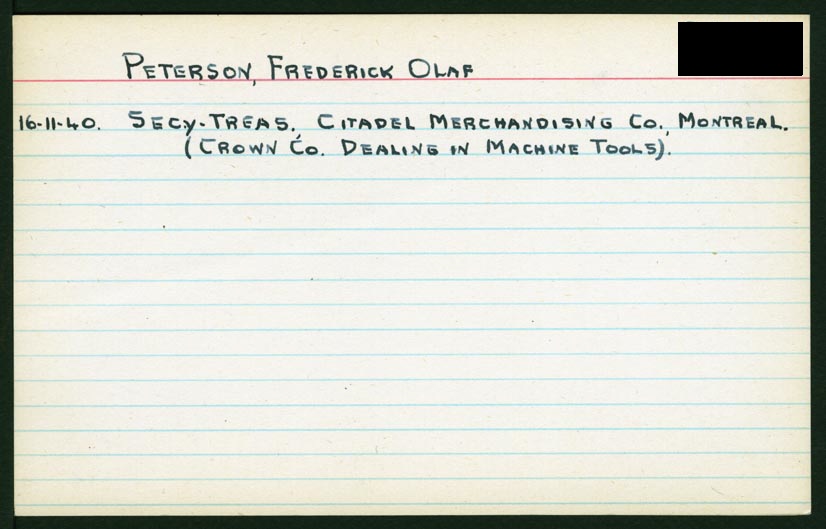 PETERSON, FREDERICK OLAF
16-11-40. SECY-TREAS, CITADEL MERCHANDISING CO., MONTREAL.
(CROWN CO. DEALING IN MACHINE TOOLS).